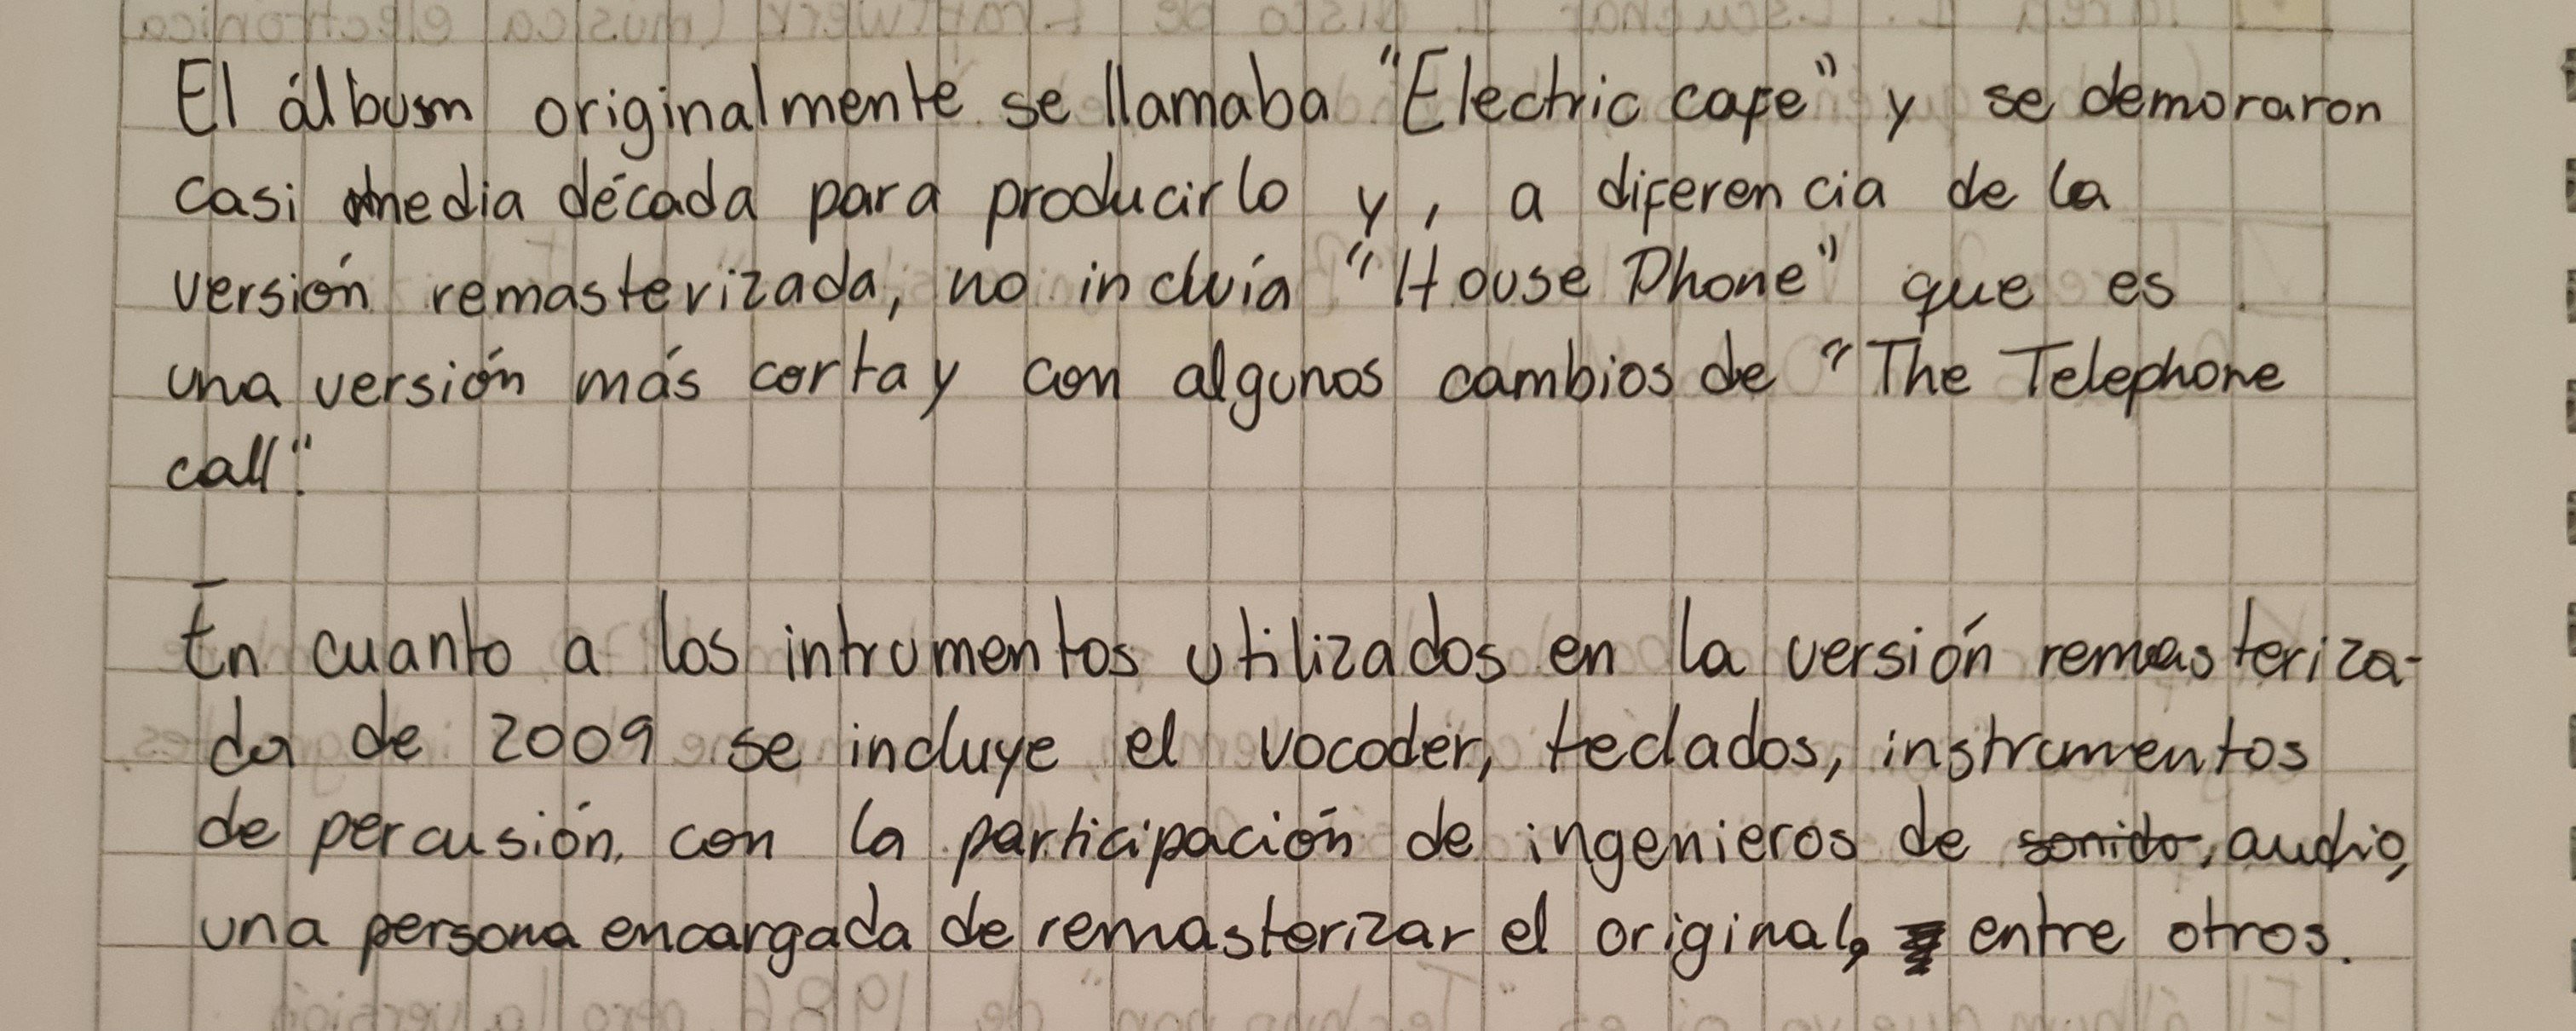 El álbum originalmente se llamaba "Electric cafe" y se demoraron
casi media década para producirlo y, a diferencia de la
versión remasterizada, no incluía "House Phone" que es
una versión más corta y con algunos cambios de "The Telephone
call".
En cuanto a los intrumentos utilizados en la versión remasteriza-
da de 2009 se incluye el vocoder, teclados, instrumentos
de percusión, con la participación de ingenieros de sonido, audio,
una persona encargada de remasterizar el original, entre otros.